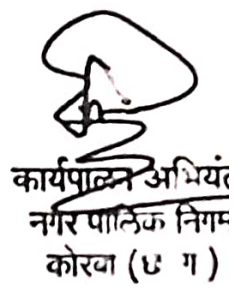 कार्यपालन अभियंत
नगर पालिक निगम
कोरबा (छ ग )